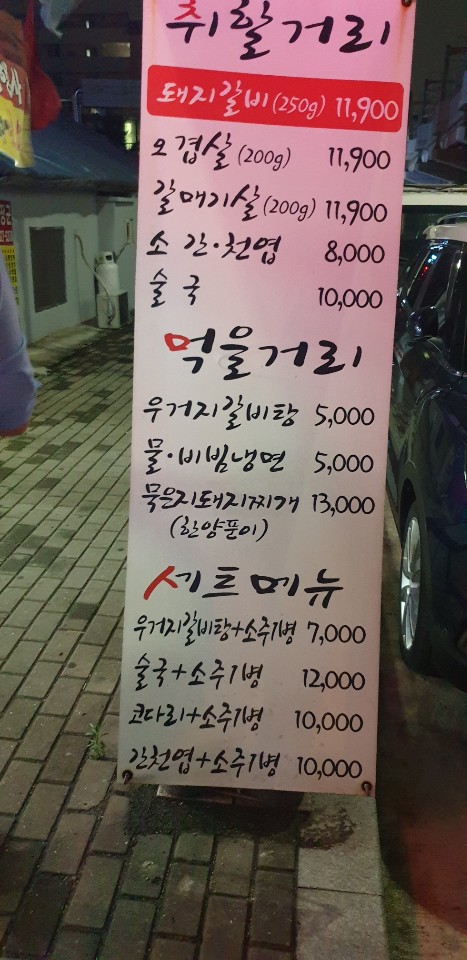 취할거리
돼지갈비(250g) 11,900
오겹살(200g) 11,900
갈매기살(200g) 11,900
소 간·천엽 8,000
술 국 10,000
먹을거리
우거지갈비탕 5,000
물·비빔냉면 5,000
묵은지돼지찌개 13,000
(한양푼이)
세트메뉴
우거지갈비탕+소주1병 7,000
술국+소주1병 12,000
코다리+소주1병 10,000
간천엽+소주1병 10,000